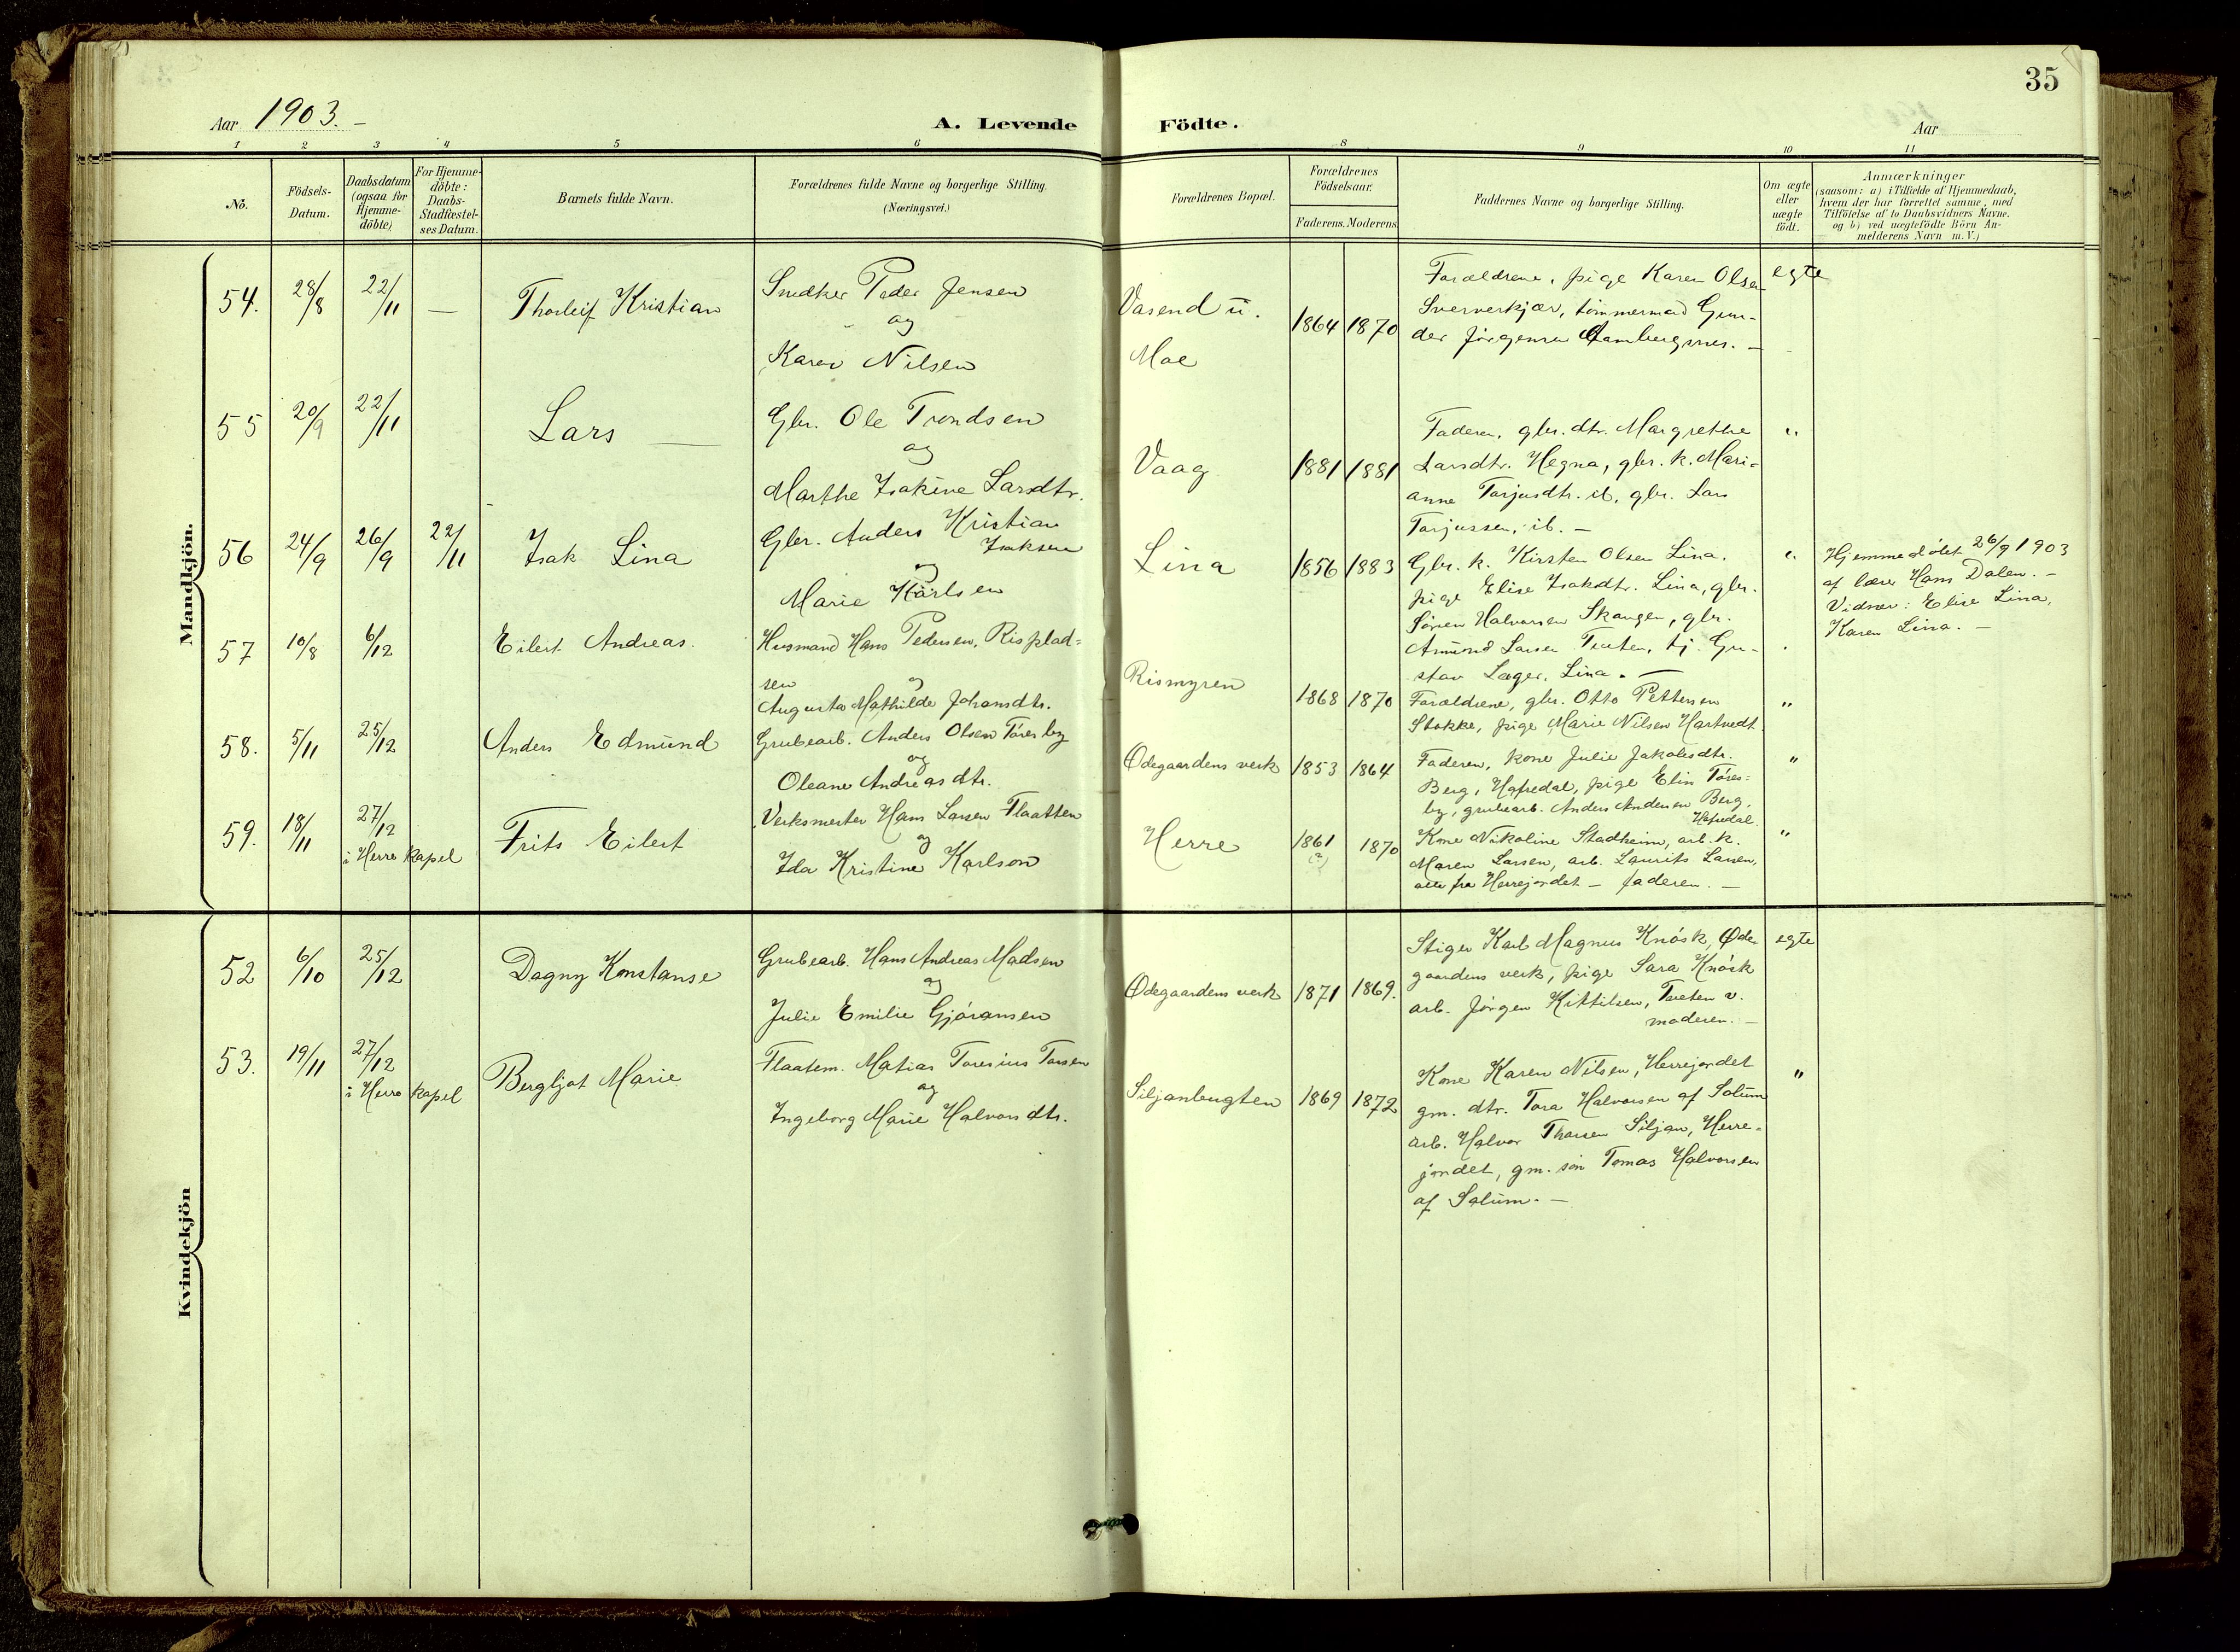 35
Aar 1903. –
A. Levende Födte.
Aar
1 2 3 4 5 6 8 9 10 11
No.
Födsels-
Datum.
Daabsdatum
(ogsaa for
Hjemme-
döbte)
For Hjemme-
döbte:
Daabs-
Stadfæstel-
ses Datum.
Barnets fulde Navn.
Forældrenes fulde Navne og borgerlige Stilling.
(Næringsvei.)
Forældrenes Bopæl.
Forældrenes
Födselsaar.
Faderens. Moderens.
Faddernes Navne og borgerlige Stilling.
Om ægte
eller
uægte
födt.
Anmærkninger
(saasom: a) i Tilfælde af Hjemmedaab,
hvem der har forrettet samme, med
Tilföielse af to Daabsvidners Navne.
og b) ved uægtefödte Börn An-
melderens Navn m. V.)
Mandkjön.
54. 28/8 22/11 — Thorleif Kristian
Snedker Peder Jensen
og
Karen Nilsen
Vasend u.
Moe
1864 1870
Forældrene, pige Karen Olsen
tömmermand Gun-
der Jörgensen
egte
55 20/9 22/11 Lars —
Gbr. Ole Trondsen
og
Marthe Isakine Larsdtr.
Vaag
1881 1881
Faderen, gbr. dtr. Margrethe
Larsdtr. Hegna, gbr. k. Mari-
anne Tarjusdtr. ib, gbr. Lars
Tarjussen, ib. –
"
56 24/9 26/9 22/11 Isak Lina
Gbr. Anders Kristian
Isaksen
og
Marie Karlsen
Lina
1856 1883
Gbr. k. Kirsten Olsen Lina.
pige Elise Isakdtr. Lina, gbr.
Sören Halvorsen Skaugen, gbr.
Amund Larsen Tveten, tj. Gu-
stav Læger, Lina. –
"
Hjemmedöbt 26/9 1903
af lærer Hans Dalen. –
Vidner: Elise Lina,
Karen Lina. –
57 10/8 6/12 Eilert Andreas.
Husmand Hans Pedersen, Risplad-
sen
og
Augusta Mathilde Johansdtr.
Rismyren
1868 1870
Forældrene, gbr. Otto Pettersen
Stokke, pige Marie Nilsen Hartvedt
"
58. 5/11 25/12 Anders Edmund
Grubearb. Anders Olsen Töresby
og
Oleane Andreasdtr.
Ödegaardens verk
1853 1864
Faderen, kone Julie Jakobsdtr.
Berg, Hafredal, pige Elin Töres-
by, grubearb. Anders Andersen Berg,
Hafredal.
"
59. 18/11 27/12
i Herre kapel
Frits Eilert
Verksmester Hans Larsen Flaatten
og
Ida Kristine Karlson
Herre
1861
(?)
1870
Kone Nikoline Stadheim, arb. k.
Maren Larsen, arb. Laurits Larsen,
alle fra Herrejordet – faderen. –
"
Kvindekjön
52 6/10 25/12 Dagny Konstanse
Grubearb. Hans Andreas Madsen
og
Julie Emilie Gjöransen
Ödegaardens verk
1871 1869.
Stiger Karl Magnus Knösk, Öde-
gaardens verk, pige Sara Knösk
arb. Jörgen Kittilsen, Tveten v.
moderen. –
egte
53. 19/11 27/12
i Herre kapel
Bergljot Marie
Flaatem. Matias Toresius Torsen
og
Ingeborg Marie Halvorsdtr.
Siljanbugten
1869 1872
Kone Karen Nilsen, Herrejordet
gm. dtr. Tora Halvorsen af Solum
arb. Halvor Thorsen Siljan, Herre-
jordet, gm. sön Tomas Halvorsen
af Solum. –
"